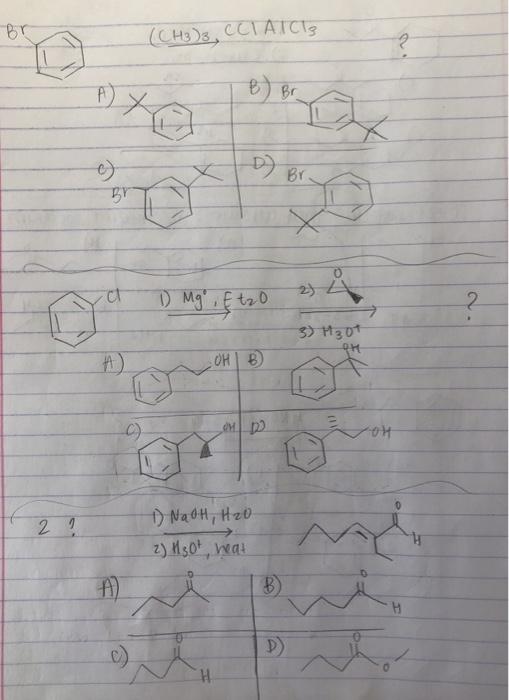 Br (CH3)3, CCl AlCl3 ?
A) B) Br
C) Br D) Br
Cl 1) Mg°, Et2O 2) O ?
3) H3O+
A) OH B) OH
C) OH D) OH
2 ? 1) NaOH, H2O O H
2) H3O+, heat
A) O B) O H
C) O H D) O O